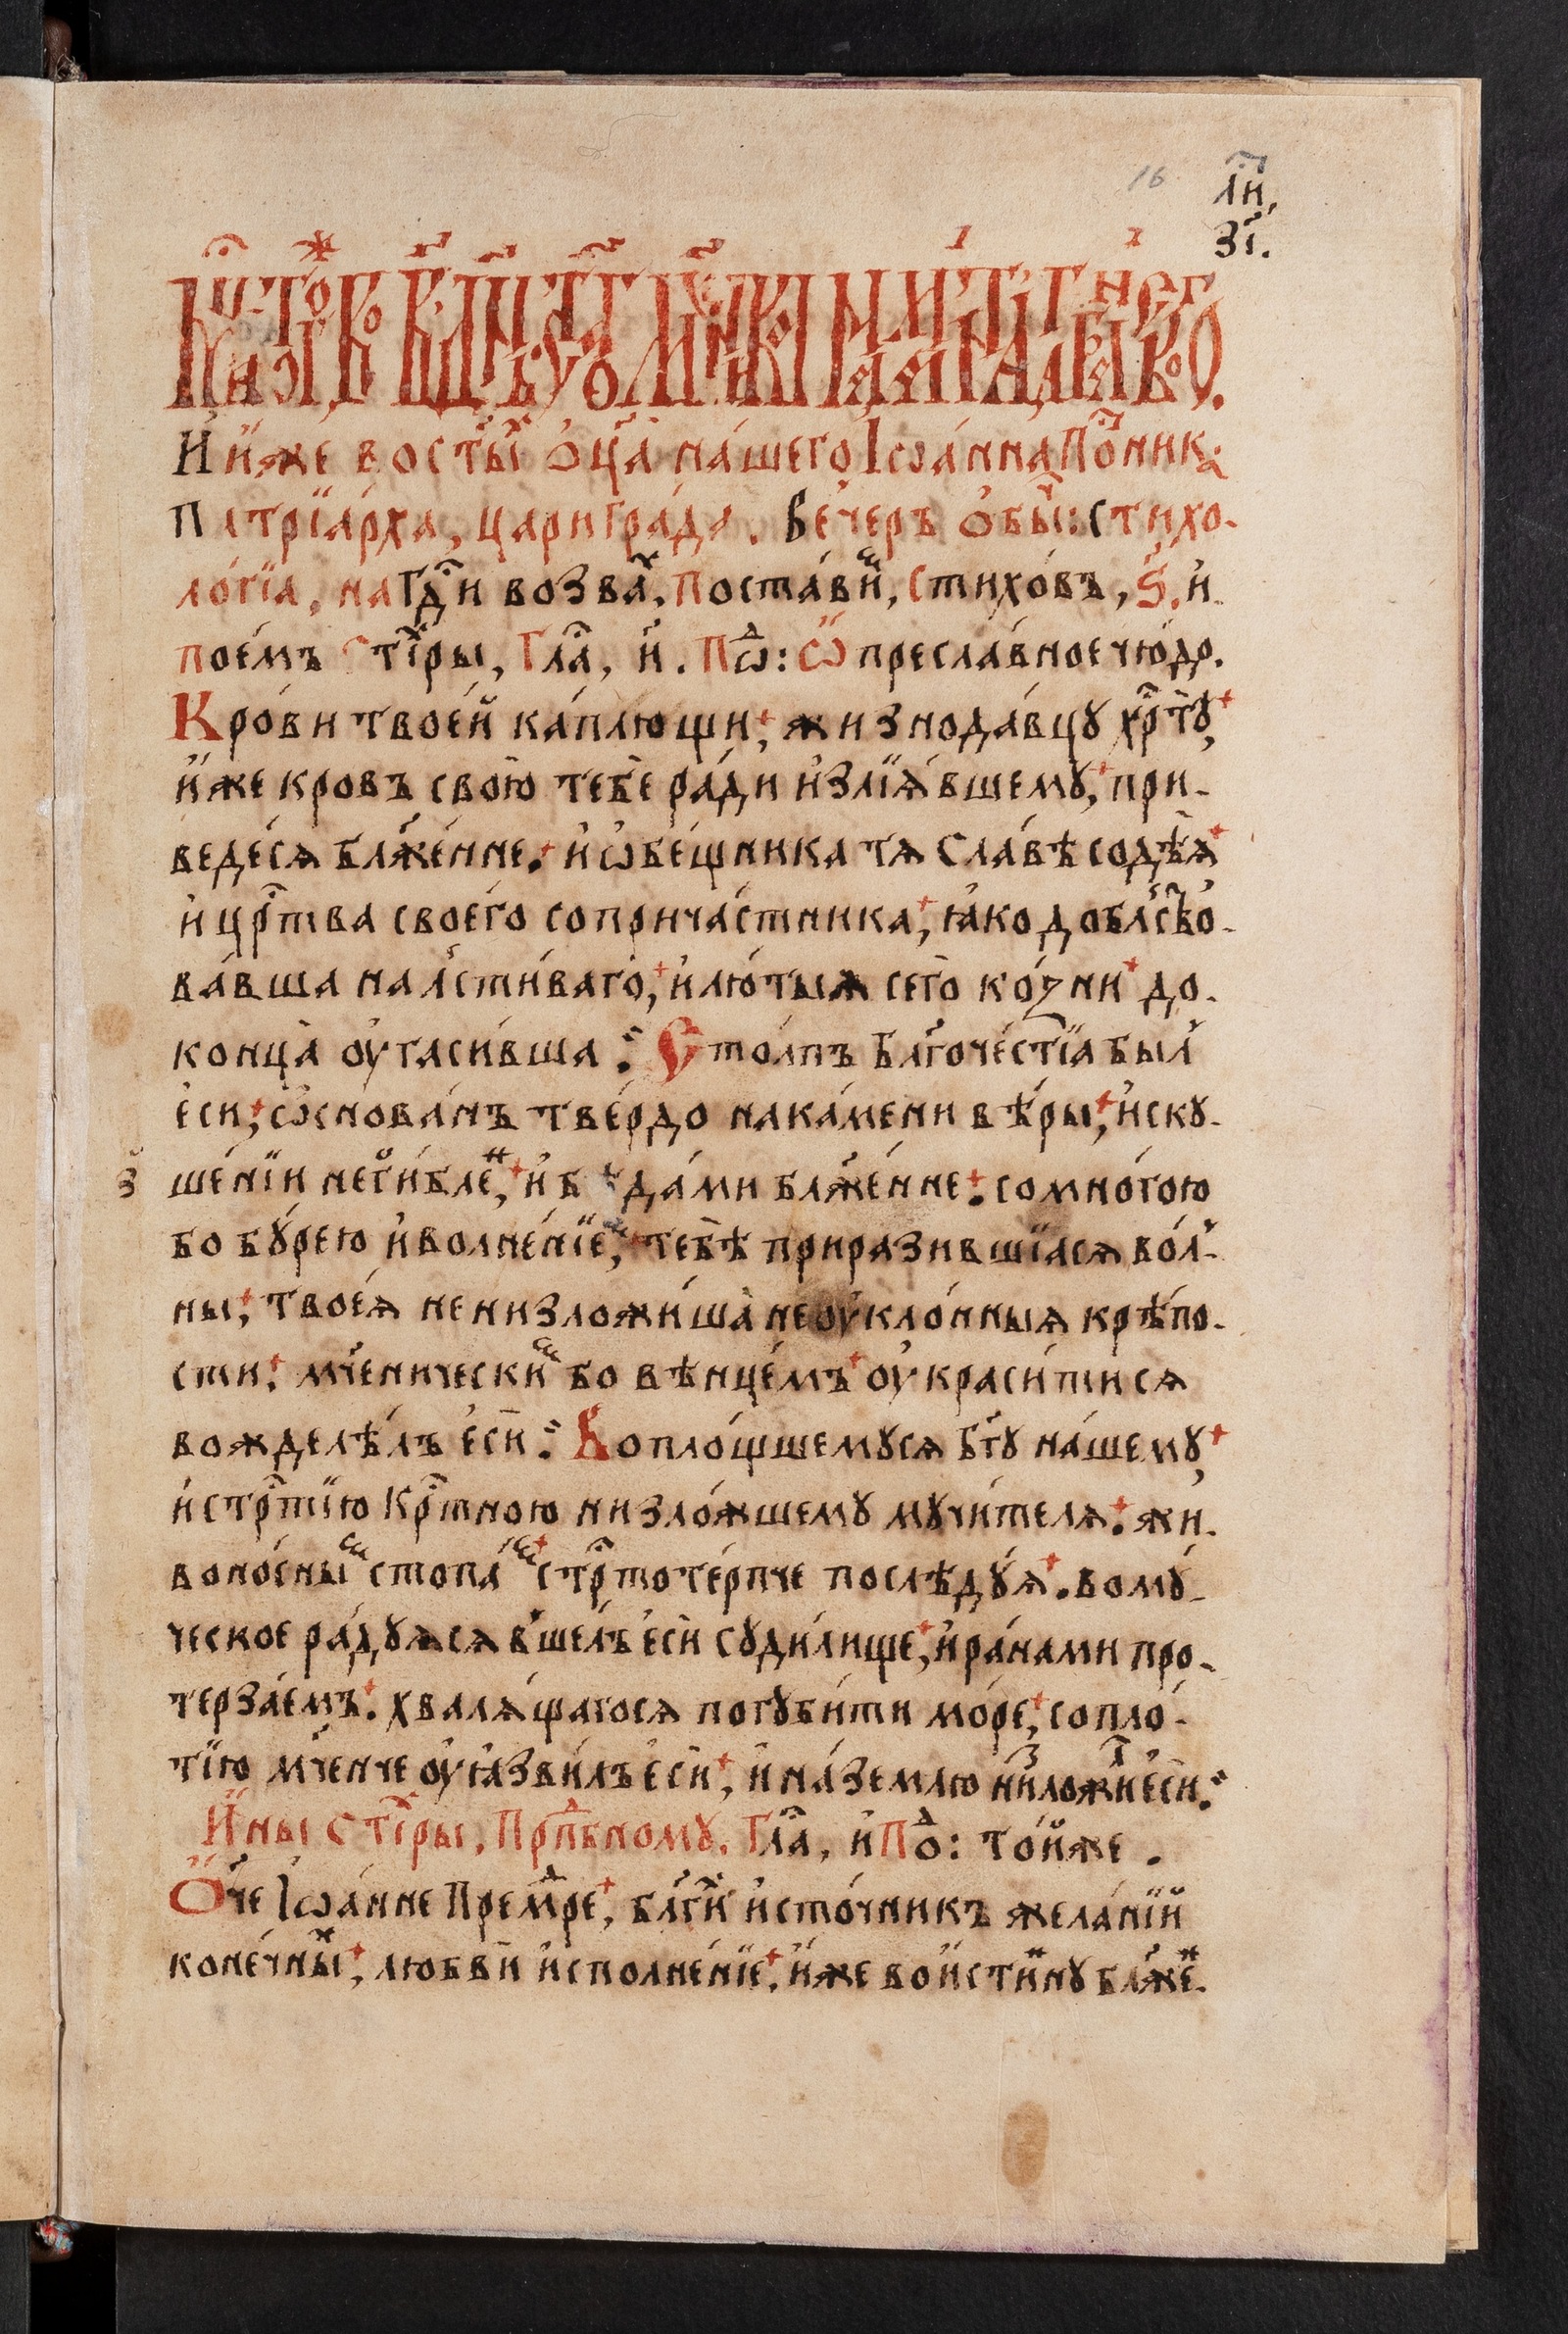 16
лн҃,
зı.
И҆ и҆́же во ст҃ы́ оц҃а̀ на́шего І҆ѡа́нна По́сника
Патрїа́рха, царигра́да. Ве́черъ ѻ҆бы́ч: стихо-
ло́гїа, на Гдⷭ҇и возва́х, поста́вим, стихо́въ, ѕ҃. и҆
пое́мъ стхи҃ры, Гла́с, и҃. Под: Ѽ пресла́вное чю́до.
Кро́ви твое́й ка́плющи, жизнода́вцу хрⷭ҇ту̀,
и҆́же кровъ свою̀ тебѐ ра́ди и҆злїѧ́вшему, при-
веде́сѧ блаже́нне. и҆ ѡбе́щника тѧ сла́вѣ содѣ́ѧ
и҆ црⷭ҇тва своего̀ соприча́стника, ꙗ҆́ко добльство-
ва́вша на льсти́ваго, и҆ лю́тыѧ сего̀ ко́зни до
конца̀ оу҆гаси́вша: Сто́лпъ бл҃гоче́стїа был
є҆сѝ, ѡ҆снова́нъ тве́рдо на ка́мени вѣ́ры, и҆ску-
ше́нїи неги́блем, и҆ бѣда́ми блаже́нне. со мно́гою
бо бу́рею и҆ волне́нїем, тебѣ̀ приразившїасѧ во́л-
ны, твоеѧ̀ не низложи́ша неоу҆кло́нныѧ крѣ́по-
сти. мч҃ническим бо вѣнце́мъ оу҆краси́тисѧ
вожделѣ́лъ є҆сѝ: Вопло́щшемусѧ бг҃у на́шему,
и҆ стрⷭ҇тїю крⷭ҇тною низло́жшему мучи́телѧ. жи-
воно́сным стопа́м стрⷭ҇тоте́рпче послѣ́дуѧ. во му́-
ческое ра́дуѧсѧ вше́лъ є҆сѝ суди́лище, и҆ ра́нами про-
терза́емъ. хвалѧ́щагосѧ погуби́ти мо́ре, со пло́-
тїю мч҃нче оу҆ѧзви́лъ є҆сѝ, и҆ на́ землю низложи́л є҆сѝ:
И҆́ны стхи҃ры, Прпⷣбному. Гла́с, и҃ Под: то́йже.
О҆́ч҃е І҆ѡа́нне Премⷣре, благи́й и҆сто́чникъ жела́нїй
коне́чный, любвѝ и҆сполне́нїе. и҆́же вои́стину блаже́н-